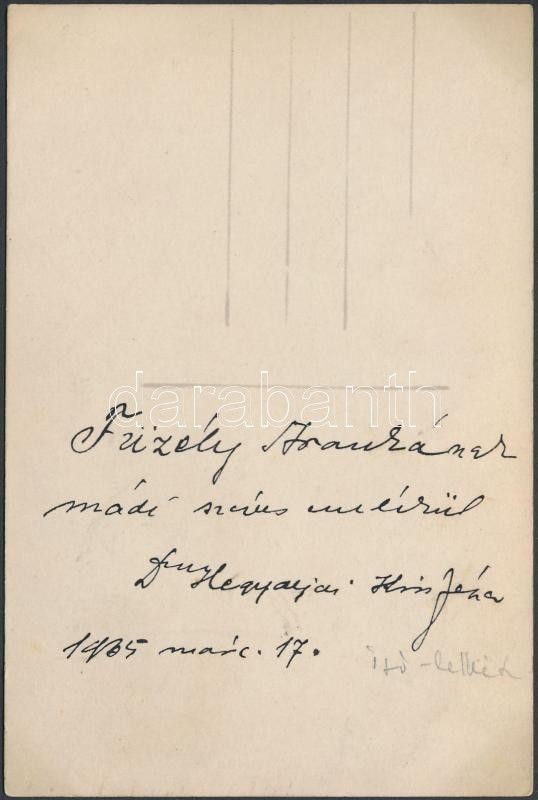 darabanth
Füzély Arankának
mádi szíves emlékül
Drny Hegyaljai Kiss Géza
1935 márc. 17.
író-lelkész